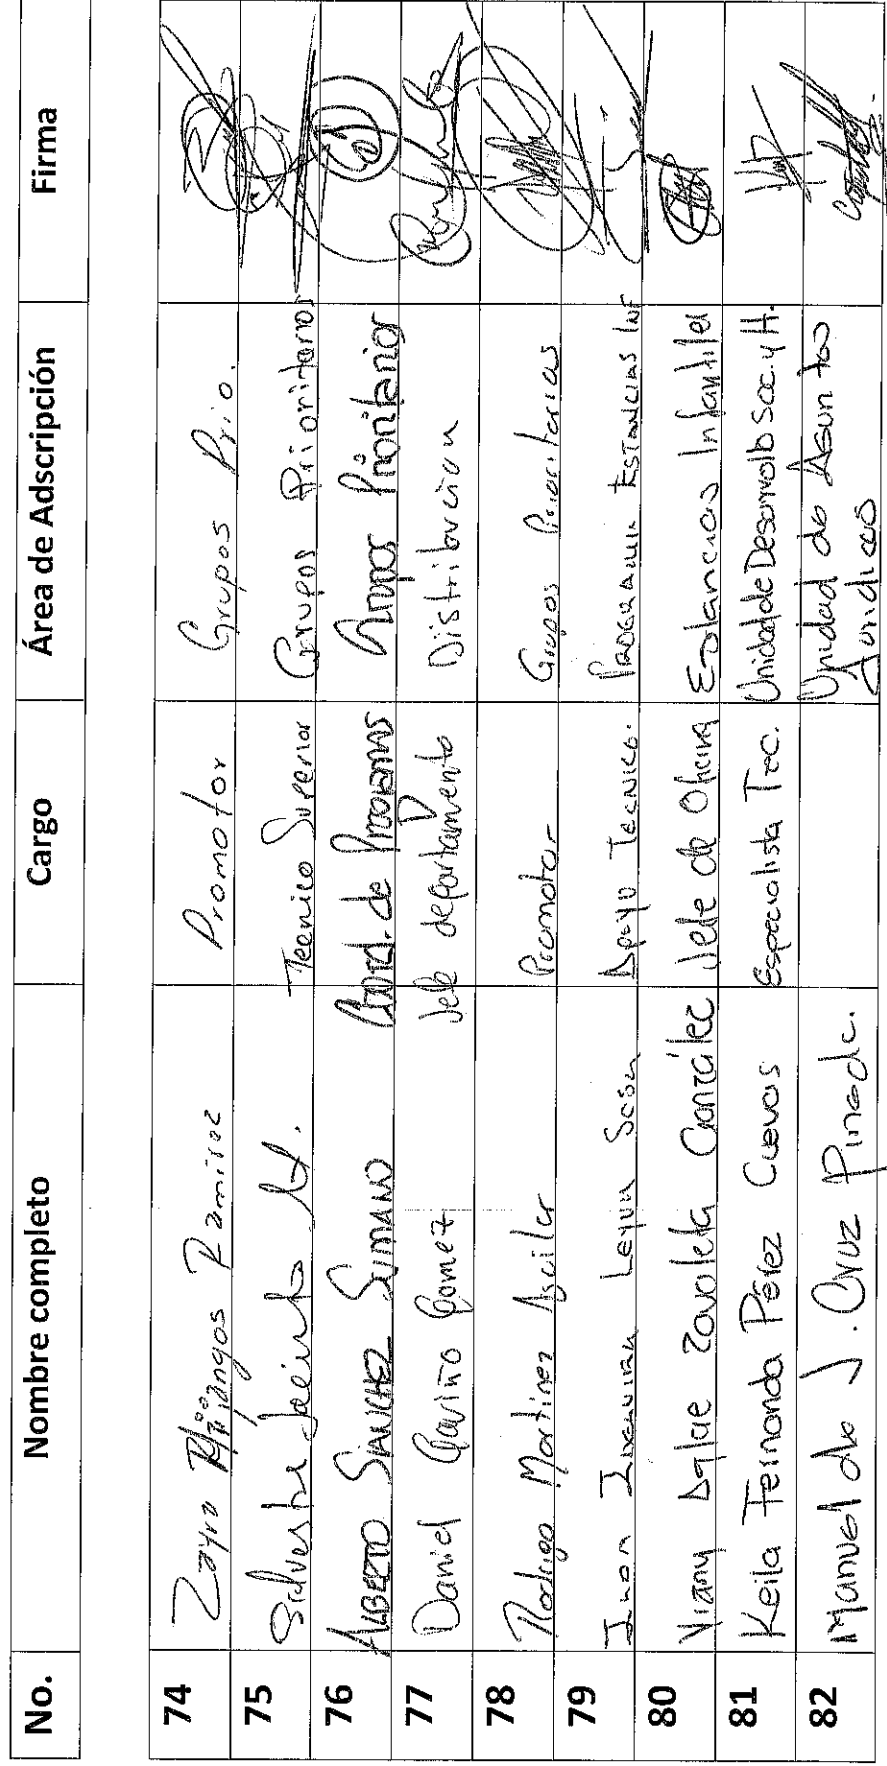 No. Nombre completo Cargo Área de Adscripción Firma
74 Zayra Ramirez Promotor Grupos Prio.
75 Silvestre Jacinto M. Tecnico Superior Grupos Prioritarios
76 ALBERTO SÁNCHEZ SUMANO Coord. de PROGRAMAS Grupos Prioritarios
77 Daniel Gaviño Gomez Jefe departamento Distribución
78 Rodrigo Martinez Aguilar Promotor Grupos Prioritarios
79 Leyva Sosa Apoyo Tecnico. PROGRAMA ESTANCIAS INF
80 Viany Dafae Zavaleta González Jefe de Oficina Estancias Infantiles
81 Keila Fernanda Pérez Cuevas Especialista Tec. Unidad de Desarrollo Soc. y H.
82 Manuel de J. Cruz Pineda. Unidad de Asuntos
Juridicos